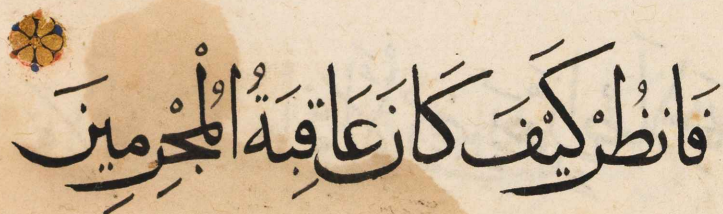 فَانظُرْ كَيْفَ كَانَ عَاقِبَةُ الْمُجْرِمِينَ